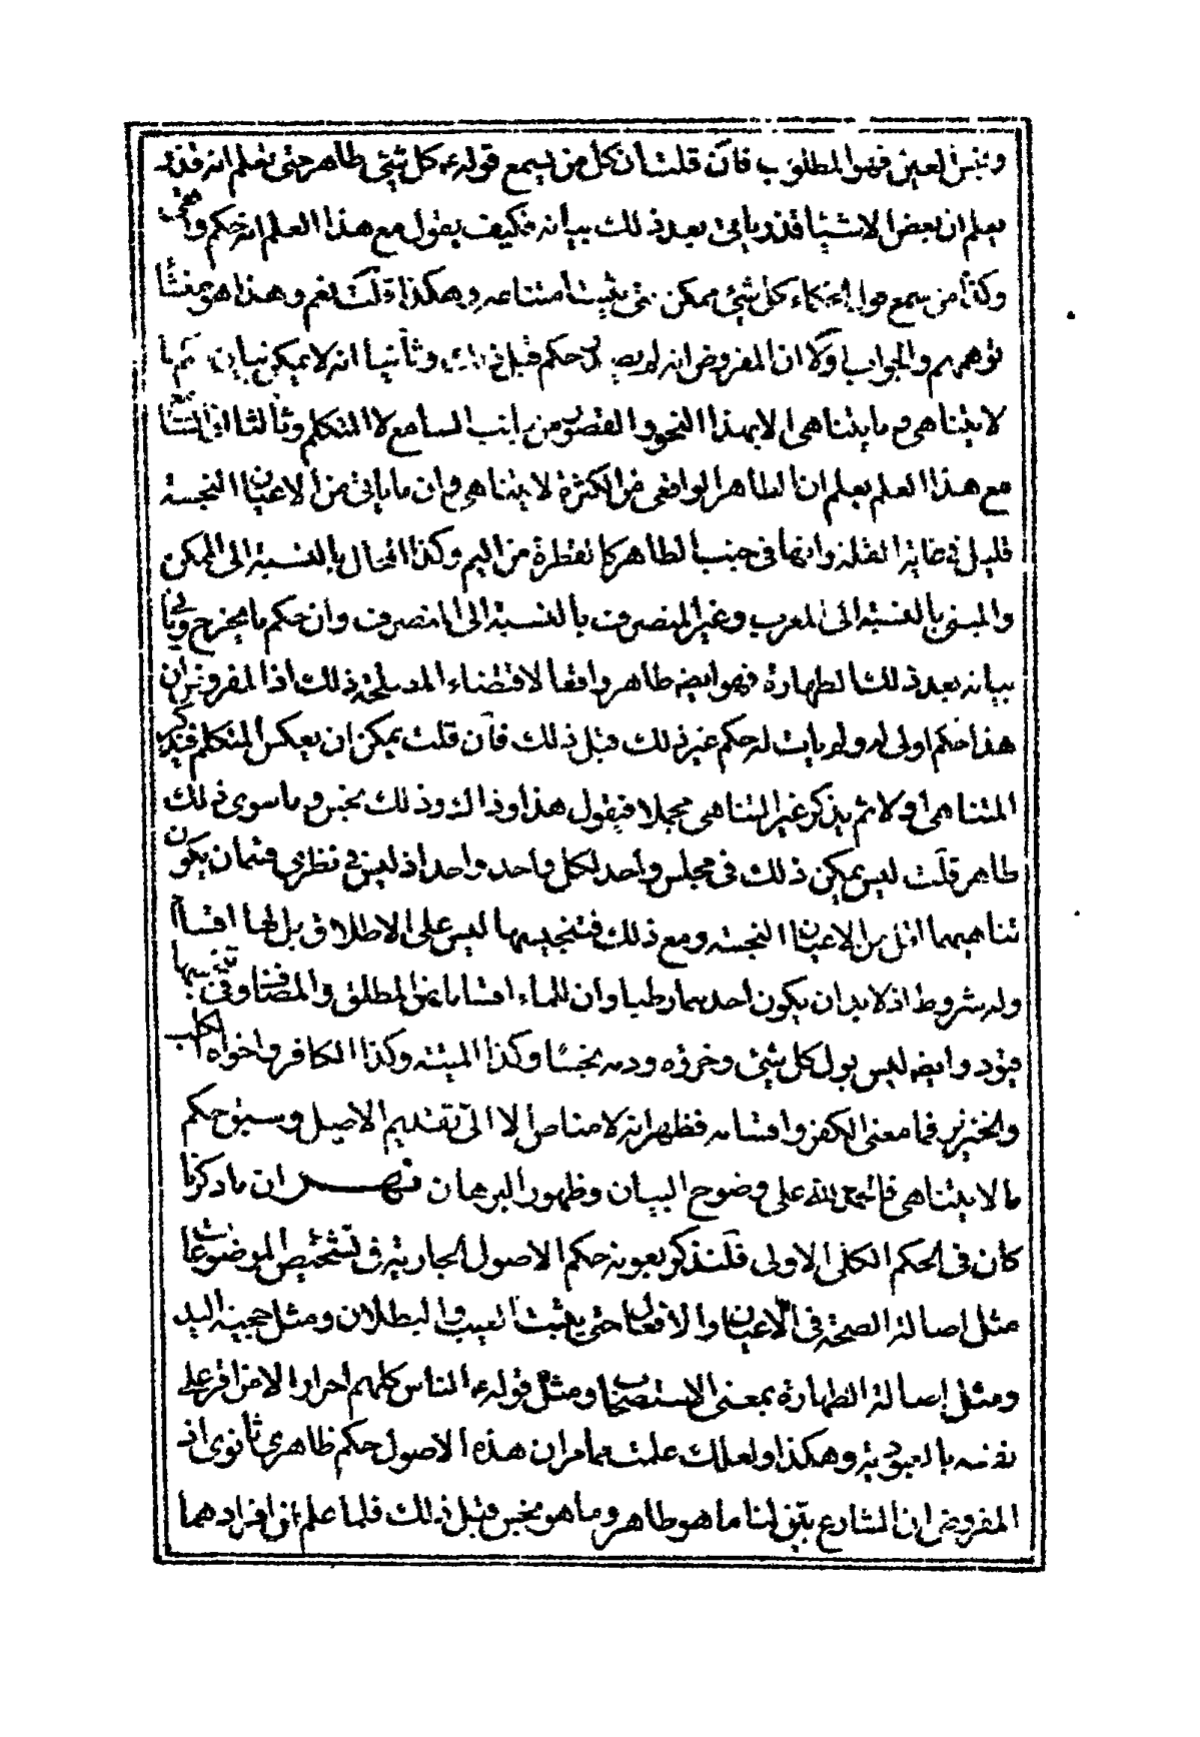 ونجس العين فهو المطلوب فان قلت ان كل من يسمع قوله ع كل شئ طاهر حتى تعلم انه قذر
يعلم ان بعض الاشياء قذر يأتى بعد ذلك بيانه فكيف يقول مع هذا العلم انه حكم واقعى
وكذا من سمع قول الحكماء كل شئ ممكن حتى يثبت امتناعه وهكذا قلت نعم وهذا هو منشأ
توهمهم والجواب اولا ان المفروض انه لم يصل حكم قبل ذلك وثانيا انه لا يمكن بيان ما
لا يتناهى وما يتناهى الا بهذا النحو والقصور من جانب السامع لا المتكلم وثالثا ان السامع
مع هذا العلم يعلم ان الطاهر الواقعى من الكثرة لا يتناهى وان ما يأتى من الاعيان النجسة
قليل فى غاية القلة وانها فى جنب الطاهر كالقطرة من اليم وكذا المحال بالنسبة الى الممكن
والمبنى بالنسبة الى المعرب وغير المنصرف بالنسبة الى المنصرف وان حكم ما يخرج ويأتى
بيانه بعد ذلك الطهارة فهو ايضا طاهر واقعا لاقتضاء المصلحة ذلك اذ المفروض ان
هذا حكم اولى له ولم يأت له حكم غير ذلك قبل ذلك فان قلت يمكن ان يعكس المتكلم فيذكر
المتناهى اولا ثم يذكر غير المتناهى مجملا فيقول هذا وذاك وذلك نجس وما سوى ذلك
طاهر قلت ليس يمكن ذلك فى مجلس واحد لكل واحد واحد اذ ليس فى نظرى قسمان يكون
تناهيهما اقل من الاعيان النجسة ومع ذلك فتنجيسها ليس على الاطلاق بل لها اقساما
وله شروط اذ لا بد ان يكون احدهما رطبا وان للماء اقساما من المطلق والمضاف وفى تنجسها
قيود وايضا ليس بول كل شئ وخرؤه ودمه نجسا وكذا الميتة وكذا الكافر واخواه الكلب
والخنزير فما معنى الكفر واقسامه فظهر انه لا مناص الا الى تقديم الاصل وسبق حكم
ما لا يتناهى فالحمد لله على وضوح البيان وظهور البرهان ثم ان ما ذكرنا
كان فى الحكم الكلى الاولى فلنذكر بعونه حكم الاصول الجارية فى تشخيص الموضوعات
مثل اصالة الصحة فى الاعيان والافعال حتى يثبت العيب والبطلان ومثل حجية اليد
ومثل اصالة الطهارة بمعنى الاستصحاب ومثل قوله ع الناس كلهم احرار الا من اقر على
نفسه بالعبودية وهكذا ولعلك علمت مما مر ان هذه الاصول حكم ظاهرى ثانوى اذ
المفروض ان الشارع بين لنا ما هو طاهر وما هو نجس قبل ذلك فلما علم ان افرادهما